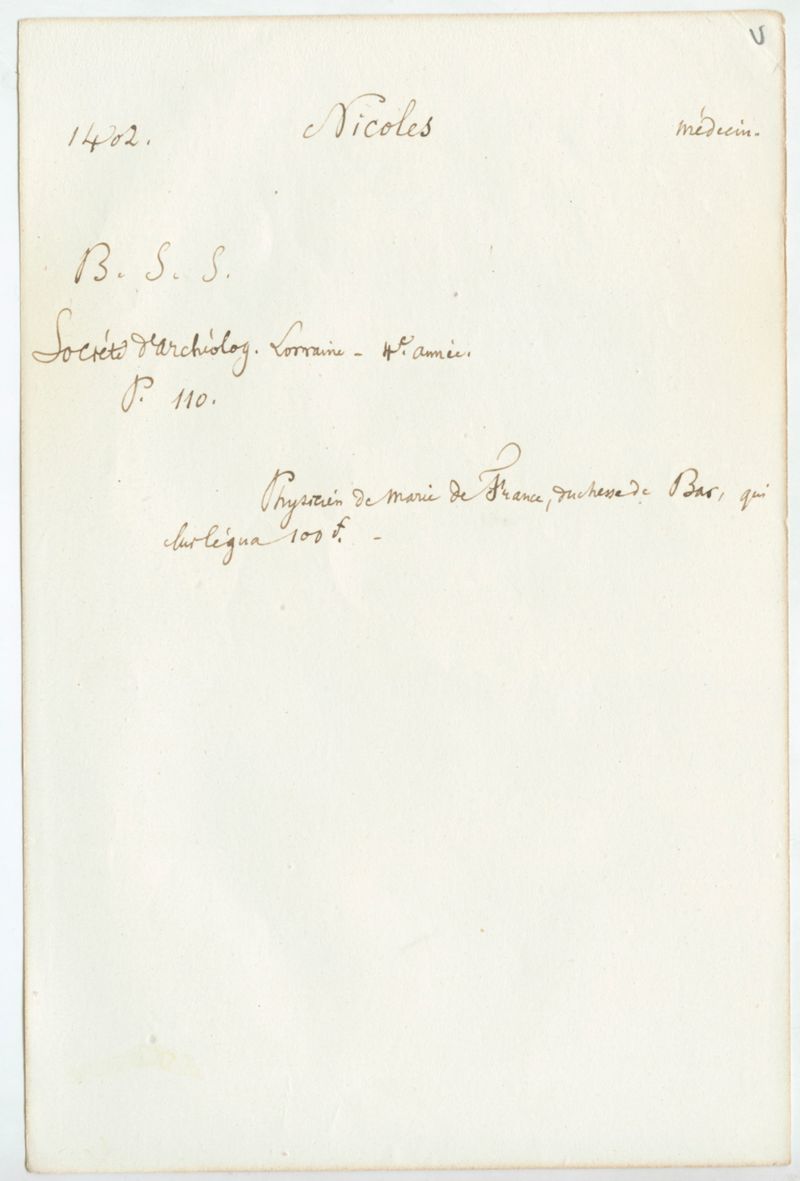 V
1402. Nicoles médecin.
B. S. S.
Société d'archéolog. Lorraine - 4e. année.
P. 110.
Physicien de Marie de France, duchesse de Bar, qui
lui légua 100 f. -